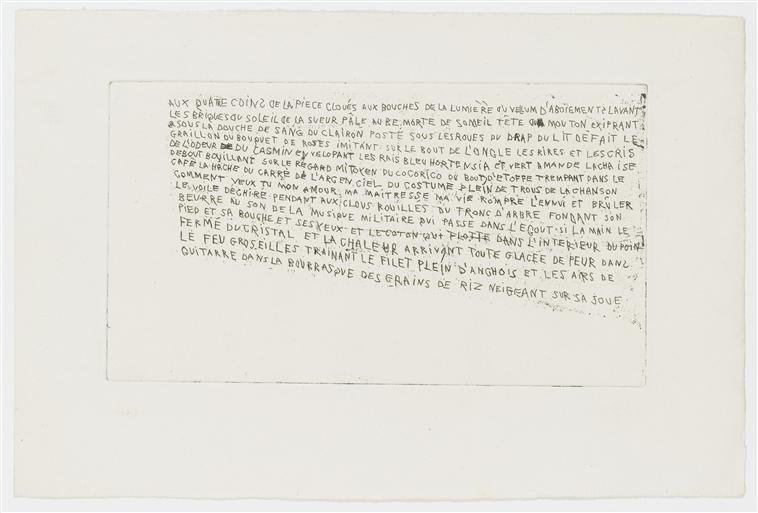 AUX QUATRE COINS DE LA PIECE CLOUÉS AUX BOUCHES DE LA LUMIERE DU VELUM D'ABOIEMENTS LAVANT
LES BRIQUES DU SOLEIL DE LA SUEUR PÂLE AUBE MORTE DE SOMEIL TÊTE MOUTON EXPIRANT
SOUS LA DOUCHE DE SANG DU CLAIRON POSTÉ SOUS LES ROUES DU DRAP DU LIT DÉFAIT LE
GRAILLON DU BOUQUET DE ROSES IMITANT SUR LE BOUT DE L'ONGLE LES RIRES ET LES CRIS
DE L'ODEUR DU JASMIN ENVELOPANT LES RAIS BLEU HORTENSIA ET VERT AMANDE LA CHAISE
DEBOUT BOUILLANT SUR LE REGARD MITOYEN DU COCORICO DU BOUT D'ETOFFE TREMPANT DANS LE
CAFÉ LA HACHE DU CARRÉ DE L'ARGEN CIEL DU COSTUME PLEIN DE TROUS DE LA CHANSON
COMMENT VEUX TU MON AMOUR MA MAITRESSE MA VIE ROMPRE L'ENNUI ET BRÛLER
LE VOILE DÉCHIRÉ PENDANT AUX CLOUS ROUILLÉS DU TRONC D'ARBRE FONDANT SON
BEURRE AU SON DE LA MUSIQUE MILITAIRE QUI PASSE DANS L'EGOUT SI LA MAIN LE
PIED ET SA BOUCHE ET SES YEUX ET LE COTON QUI FLOTTE DANS L'INTERIEUR DU POIN
FERMÉ DU CRISTAL ET LA CHALEUR ARRIVANT TOUTE GLACÉE DE PEUR DANS
LE FEU GROSEILLES TRAINANT LE FILET PLEIN D'ANCHOIS ET LES AIRS DE
GUITARRE DANS LA BOURRASQUE DES GRAINS DE RIZ NEIGEANT SUR SA JOUE